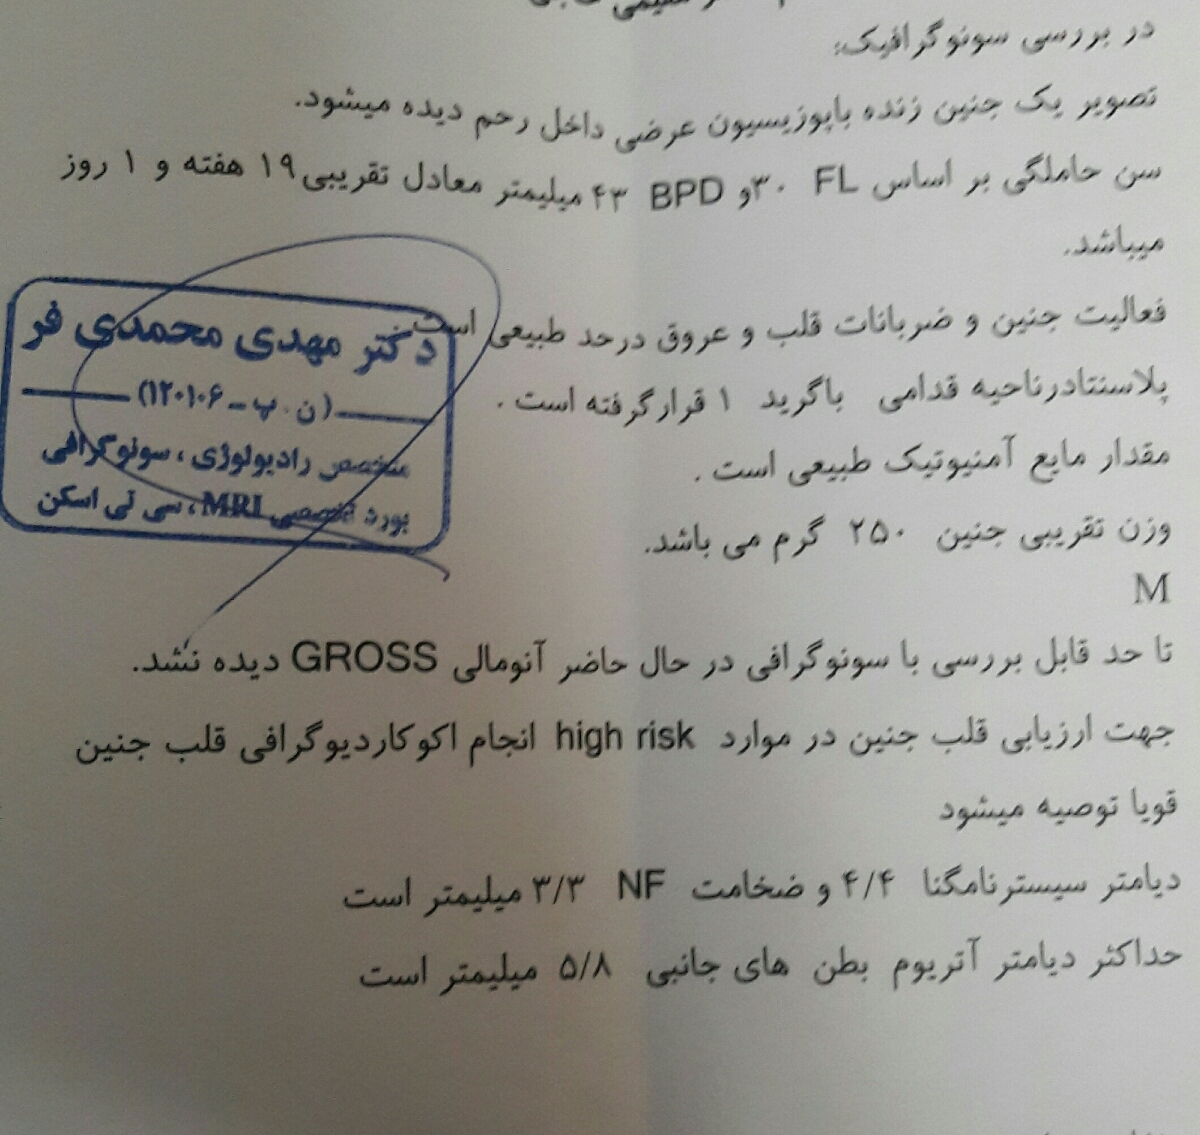 در بررسی سونوگرافیک:
تصویر یک جنین زنده باپوزیسیون عرضی داخل رحم دیده میشود.
سن حاملگی بر اساس FL ۳۰و BPD ۴۳ میلیمتر معادل تقریبی ۱۹ هفته و ۱ روز
میباشد.
فعالیت جنین و ضربانات قلب و عروق درحد طبیعی است
پلاسنتادرناحیه قدامی باگرید ۱ قرارگرفته است .
مقدار مایع آمنیوتیک طبیعی است .
وزن تقریبی جنین ۲۵۰ گرم می باشد.
M
تا حد قابل بررسی با سونوگرافی در حال حاضر آنومالی GROSS دیده نشد.
جهت ارزیابی قلب جنین در موارد high risk انجام اکوکاردیوگرافی قلب جنین
قویا توصیه میشود
دیامتر سیسترنامگنا ۴/۴ و ضخامت NF ۳/۳ میلیمتر است
حداکثر دیامتر آتریوم بطن های جانبی ۵/۸ میلیمتر است
دکتر مهدی محمدی فر
(ن . پ ـ ۱۲۰۱۰۶)
متخصص رادیولوژی ، سونوگرافی
بورد تخصصی MRI ، سی تی اسکن